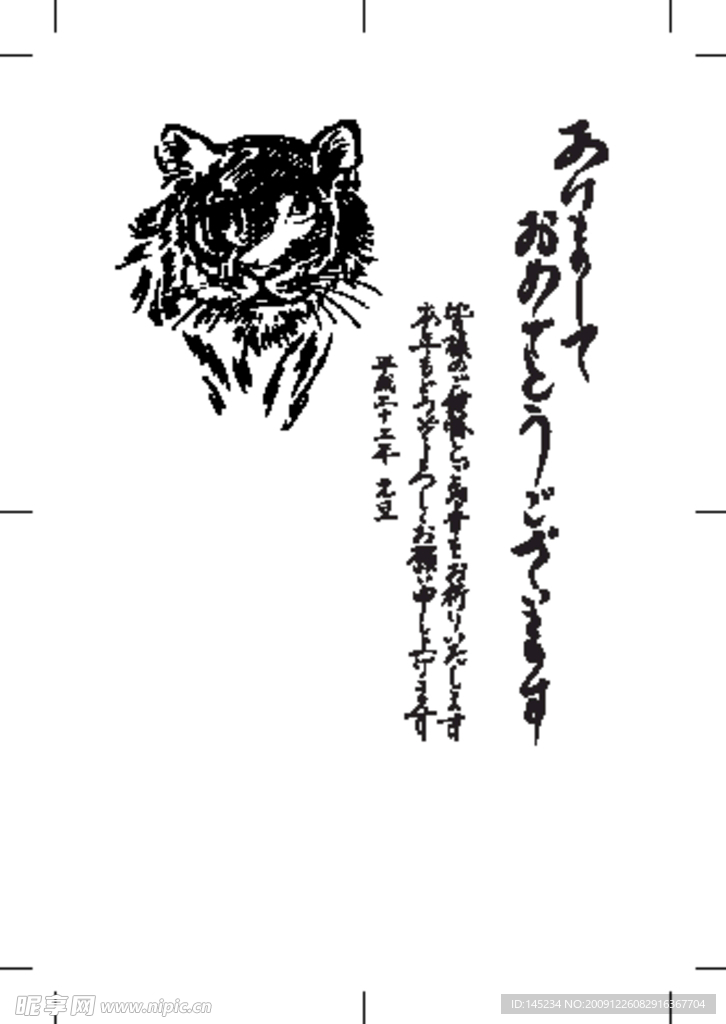 あけまして
おめでとうございます
皆様のご健勝とご多幸をお祈りいたします
本年もどうぞよろしくお願い申し上げます
平成二十二年 元旦
昵享网 www.nipic.cn
ID:145234 NO:20091226082916367704